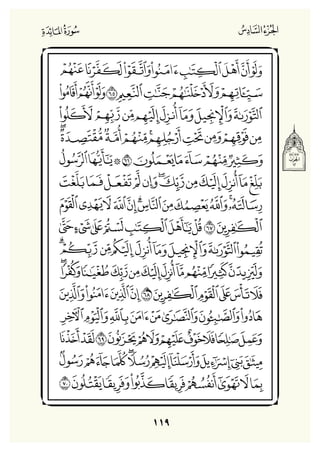 الجُزْءُ السَّادِسُ
سُورَةُ المَائِدَةِ
وَلَوْ أَنَّ أَهْلَ الْكِتَابِ آمَنُوا وَاتَّقَوْا لَكَفَّرْنَا عَنْهُمْ
سَيِّئَاتِهِمْ وَلَأَدْخَلْنَاهُمْ جَنَّاتِ النَّعِيمِ ٦٥ وَلَوْ أَنَّهُمْ أَقَامُوا
التَّوْرَاةَ وَالْإِنجِيلَ وَمَا أُنزِلَ إِلَيْهِم مِّن رَّبِّهِمْ لَأَكَلُوا
مِن فَوْقِهِمْ وَمِن تَحْتِ أَرْجُلِهِم مِّنْهُمْ أُمَّةٌ مُّقْتَصِدَةٌ
وَكَثِيرٌ مِّنْهُمْ سَاءَ مَا يَعْمَلُونَ ٦٦ ۞ يَا أَيُّهَا الرَّسُولُ
بَلِّغْ مَا أُنزِلَ إِلَيْكَ مِن رَّبِّكَ وَإِن لَّمْ تَفْعَلْ فَمَا بَلَّغْتَ
رِسَالَتَهُ وَاللَّهُ يَعْصِمُكَ مِنَ النَّاسِ إِنَّ اللَّهَ لَا يَهْدِي الْقَوْمَ
الْكَافِرِينَ ٦٧ قُلْ يَا أَهْلَ الْكِتَابِ لَسْتُمْ عَلَىٰ شَيْءٍ حَتَّىٰ
تُقِيمُوا التَّوْرَاةَ وَالْإِنجِيلَ وَمَا أُنزِلَ إِلَيْكُم مِّن رَّبِّكُمْ
وَلَيَزِيدَنَّ كَثِيرًا مِّنْهُم مَّا أُنزِلَ إِلَيْكَ مِن رَّبِّكَ طُغْيَانًا وَكُفْرًا
فَلَا تَأْسَ عَلَى الْقَوْمِ الْكَافِرِينَ ٦٨ إِنَّ الَّذِينَ آمَنُوا وَالَّذِينَ
هَادُوا وَالصَّابِئُونَ وَالنَّصَارَىٰ مَنْ آمَنَ بِاللَّهِ وَالْيَوْمِ الْآخِرِ
وَعَمِلَ صَالِحًا فَلَا خَوْفٌ عَلَيْهِمْ وَلَا هُمْ يَحْزَنُونَ ٦٩ لَقَدْ أَخَذْنَا
مِيثَاقَ بَنِي إِسْرَائِيلَ وَأَرْسَلْنَا إِلَيْهِمْ رُسُلًا كُلَّمَا جَاءَهُمْ رَسُولٌ
بِمَا لَا تَهْوَىٰ أَنفُسُهُمْ فَرِيقًا كَذَّبُوا وَفَرِيقًا يَقْتُلُونَ ٧٠
١١٩